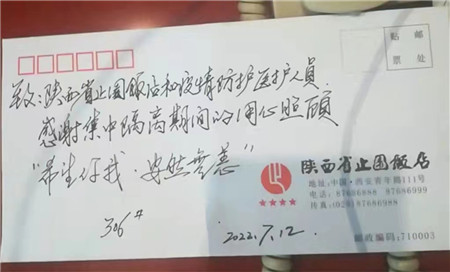 贴 邮
票 处
致：陕西省止园饭店和疫情防护医护人员
感谢集中隔离期间的用心照顾
生你我·安然無恙”
陕西省止园饭店
地址:中国·西安青年路111号
电话:87686888 87686999
传真:
306#
2022.7.12
邮政编码:710003